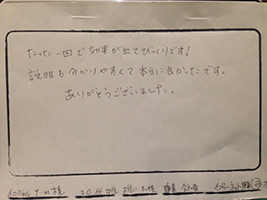 たった一回で効果が出てびっくりです!
説明も分かりやすくて本当に良かったです。
ありがとうございました。
イニシャル Y.M様 30代